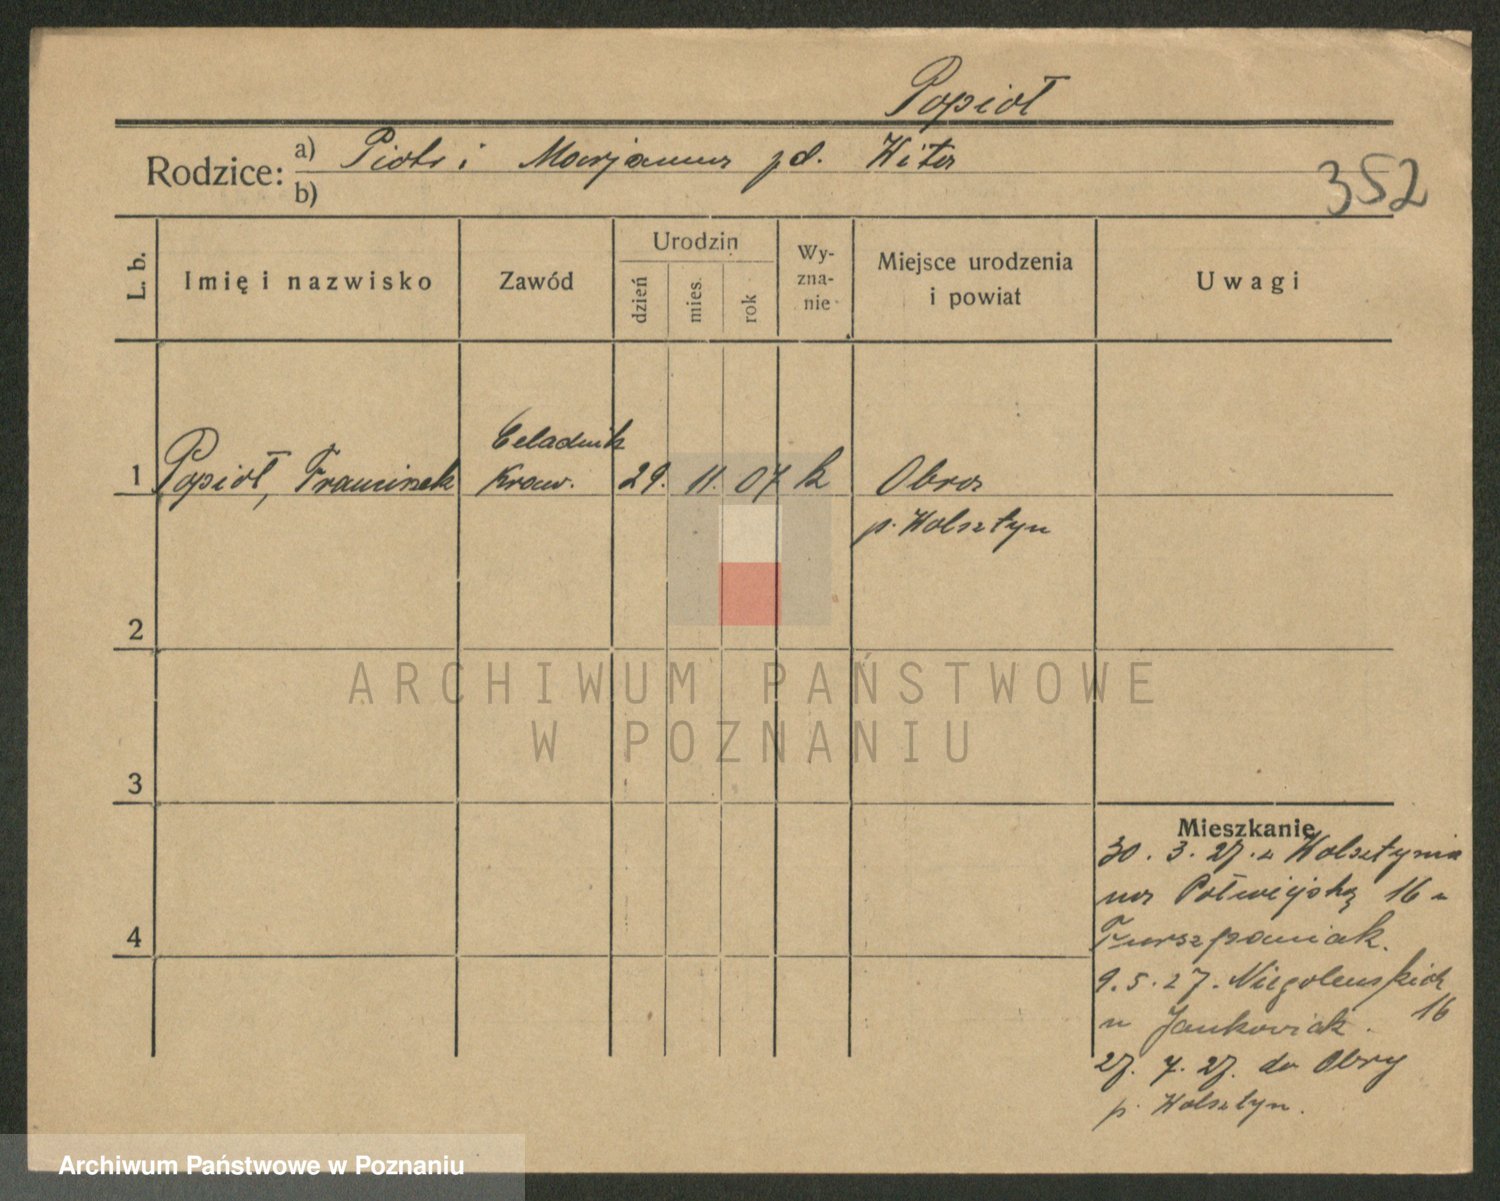 Popioł
Rodzice: a) Piotr i Marjanna zd. Wita
b)
352
L. b.
Imię i nazwisko
Zawód
Urodzin
dzień
mies.
rok
Wy-
zna-
nie
Miejsce urodzenia
i powiat
Uwagi
Czeladnik
1 Popioł, Franciszek kraw. 29. 11. 07 k Obra
p. Wolsztyn
2
3
4
ARCHIWUM PAŃSTWOWE
W POZNANIU
Mieszkanie
30. 3. 27. z Wolsztynia
na Półwiejską 16 u
9. 5. 27. Niegolewskich
16
u Jankowiak.
27. 7. 27. do Obry
p. Wolsztyn.
Archiwum Państwowe w Poznaniu